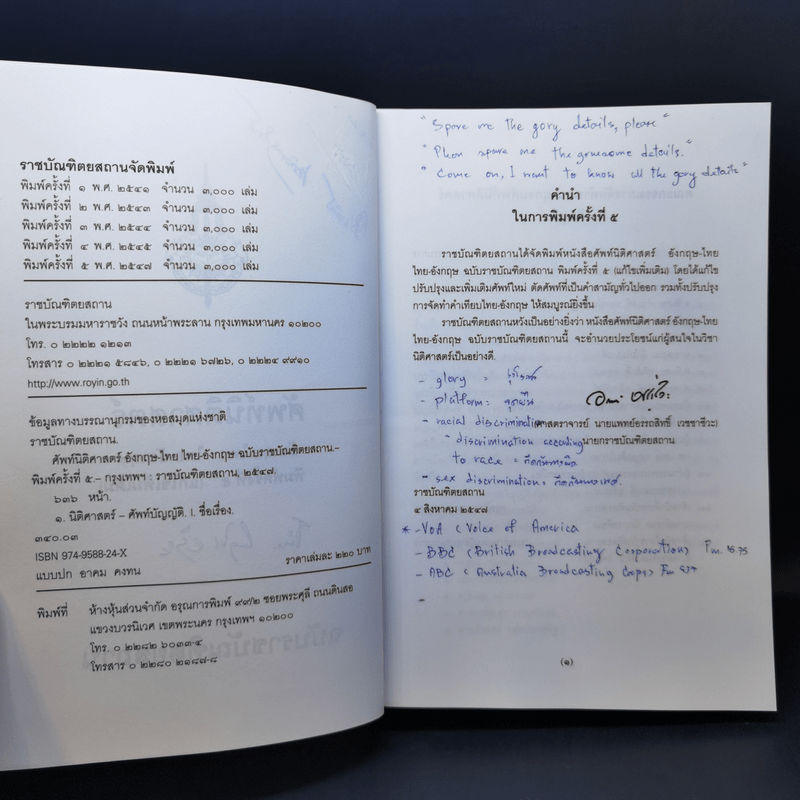 ราชบัณฑิตยสถานจัดพิมพ์
พิมพ์ครั้งที่ ๑ พ.ศ. ๒๕๔๑ จำนวน ๓,๐๐๐ เล่ม
พิมพ์ครั้งที่ ๒ พ.ศ. ๒๕๔๓ จำนวน ๓,๐๐๐ เล่ม
พิมพ์ครั้งที่ ๓ พ.ศ. ๒๕๔๔ จำนวน ๓,๐๐๐ เล่ม
พิมพ์ครั้งที่ ๔ พ.ศ. ๒๕๔๕ จำนวน ๓,๐๐๐ เล่ม
พิมพ์ครั้งที่ ๕ พ.ศ. ๒๕๔๗ จำนวน ๓,๐๐๐ เล่ม
ราชบัณฑิตยสถาน
ในพระบรมมหาราชวัง ถนนหน้าพระลาน กรุงเทพมหานคร ๑๐๒๐๐
โทร. ๐ ๒๒๒๒ ๑๒๑๓
โทรสาร ๐ ๒๒๒๑ ๕๘๔๖, ๐ ๒๒๒๑ ๖๗๒๖, ๐ ๒๒๒๔ ๙๙๑๐
http://www.royin.go.th
ข้อมูลทางบรรณานุกรมของหอสมุดแห่งชาติ
ราชบัณฑิตยสถาน.
ศัพท์นิติศาสตร์ อังกฤษ-ไทย ไทย-อังกฤษ ฉบับราชบัณฑิตยสถาน.–
พิมพ์ครั้งที่ ๕.– กรุงเทพฯ : ราชบัณฑิตยสถาน, ๒๕๔๗.
๖๓๖ หน้า.
๑. นิติศาสตร์ – ศัพท์บัญญัติ. I. ชื่อเรื่อง.
๓๔๐.๐๓
ISBN 974-9588-24-X ราคาเล่มละ ๒๒๐ บาท
แบบปก อาคม คงทน
พิมพ์ที่ ห้างหุ้นส่วนจำกัด อรุณการพิมพ์ ๙๙/๒ ซอยพระศุลี ถนนดินสอ
แขวงบวรนิเวศ เขตพระนคร กรุงเทพฯ ๑๐๒๐๐
โทร. ๐ ๒๒๘๒ ๖๐๓๓-๔
โทรสาร ๐ ๒๒๘๐ ๒๑๘๗-๘
"Spare me the gory details, please"
"Pleas spare me the gruesome details."
"Come on, I want to know all the gory details"
คำนำ
ในการพิมพ์ครั้งที่ ๕
ราชบัณฑิตยสถานได้จัดพิมพ์หนังสือศัพท์นิติศาสตร์ อังกฤษ-ไทย
ไทย-อังกฤษ ฉบับราชบัณฑิตยสถาน พิมพ์ครั้งที่ ๕ (แก้ไขเพิ่มเติม) โดยได้แก้ไข
ปรับปรุงและเพิ่มเติมศัพท์ใหม่ ตัดศัพท์ที่เป็นคำสามัญทั่วไปออก รวมทั้งปรับปรุง
การจัดทำคำเทียบไทย-อังกฤษ ให้สมบูรณ์ยิ่งขึ้น
ราชบัณฑิตยสถานหวังเป็นอย่างยิ่งว่า หนังสือศัพท์นิติศาสตร์ อังกฤษ-ไทย
ไทย-อังกฤษ ฉบับราชบัณฑิตยสถานนี้ จะอำนวยประโยชน์แก่ผู้สนใจในวิชา
นิติศาสตร์เป็นอย่างดี.
- glory =
- platform =
- racial discrimination
ศาสตราจารย์ นายแพทย์อรรถสิทธิ์ เวชชาชีวะ
"discrimination according
นายกราชบัณฑิตยสถาน
to race =
- sex discrimination =
ราชบัณฑิตยสถาน
๔ สิงหาคม ๒๕๔๗
* - VOA (Voice of America
- BBC (British Broadcasting Corporation) Fm.
- ABC (Australia Broadcasting Corps) Fm
-
(๑)